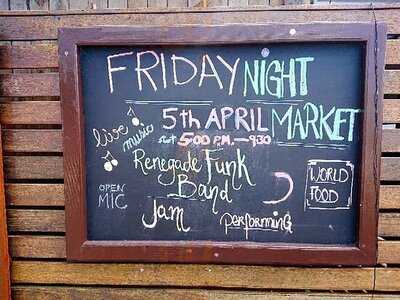 FRIDAY NIGHT
5th APRIL MARKET
live music
5:00 P.M. — 9:30
Renegade Funk
Band
WORLD
FOOD
OPEN
MIC
Jam
performing